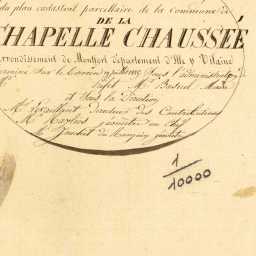 du plan cadastral parcellaire de la Commune de
DE LA
CHAPELLE CHAUSSÉE
arrondissement de Montfort département d'Ille & Vilaine
terminé sur le terrain
Préfet Mr Maire
et sous la Direction
Mr directeur des Contributions
Mr géomètre en Chef
Mr géomètre
1
10000